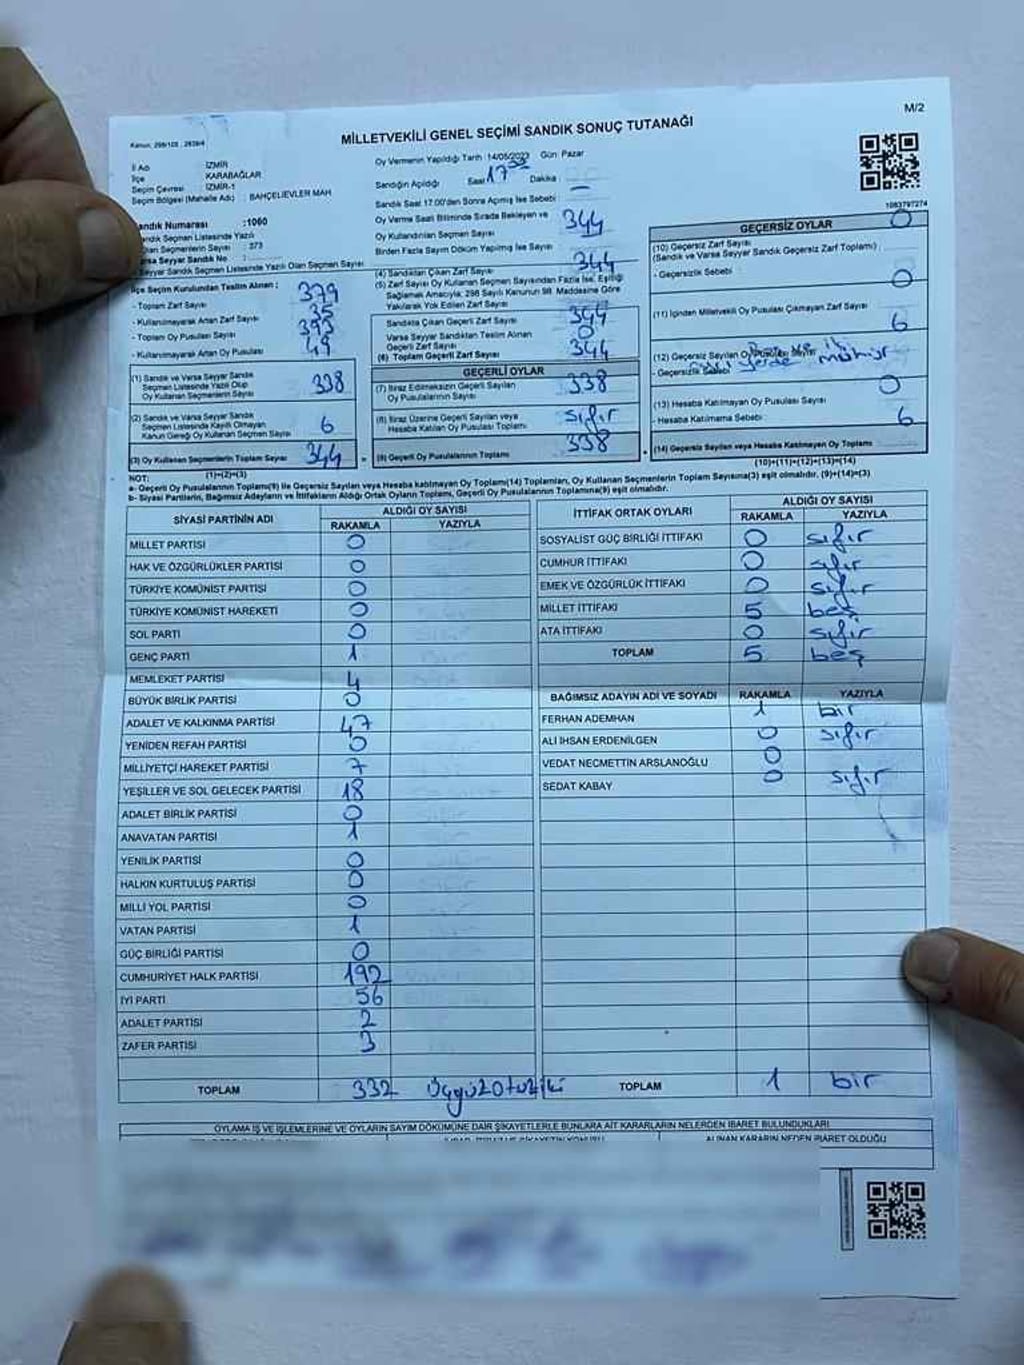 Kanun: 298/105 , 2839/4
MİLLETVEKİLİ GENEL SEÇİMİ SANDIK SONUÇ TUTANAĞI
M/2
İl Adı : İZMİR
İlçe : KARABAĞLAR
Seçim Çevresi : İZMİR-1
Seçim Bölgesi (Mahalle Adı) : BAHÇELİEVLER MAH.
Sandık Numarası :1060
Sandık Seçmen Listesinde Yazılı
Olan Seçmenlerin Sayısı : 373
Varsa Seyyar Sandık No :
Seyyar Sandık Seçmen Listesinde Yazılı Olan Seçmen Sayısı
İlçe Seçim Kurulundan Teslim Alınan :
- Toplam Zarf Sayısı 379
- Kullanılmayarak Artan Zarf Sayısı 35
- Toplam Oy Pusulası Sayısı 393
- Kullanılmayarak Artan Oy Pusulası 49
(1) Sandık ve Varsa Seyyar Sandık
Seçmen Listesinde Yazılı Olup
Oy Kullanan Seçmenlerin Sayısı 338
(2) Sandık ve Varsa Seyyar Sandık
Seçmen Listesinde Kayıtlı Olmayan
Kanun Gereği Oy Kullanan Seçmen Sayısı 6
(3) Oy Kullanan Seçmenlerin Toplam Sayısı 344
(1)+(2)=(3)
Oy Vermenin Yapıldığı Tarih :14/05/2023 Gün: Pazar
Sandığın Açıldığı Saat 17 Dakika
Sandık Saat 17.00'den Sonra Açılmış İse Sebebi :
Oy Verme Saati Bitiminde Sırada Bekleyen ve
Oy Kullandırılan Seçmen Sayısı 344
Birden Fazla Sayım Döküm Yapılmış İse Sayısı
(4) Sandıktan Çıkan Zarf Sayısı 344
(5) Zarf Sayısı Oy Kullanan Seçmen Sayısından Fazla İse, Eşitliği
Sağlamak Amacıyla, 298 Sayılı Kanunun 98. Maddesine Göre
Yakılarak Yok Edilen Zarf Sayısı
Sandıkta Çıkan Geçerli Zarf Sayısı 344
Varsa Seyyar Sandıktan Teslim Alınan
Geçerli Zarf Sayısı 0
(6) Toplam Geçerli Zarf Sayısı 344
GEÇERLİ OYLAR
(7) İtiraz Edilmeksizin Geçerli Sayılan
Oy Pusulalarının Sayısı 338
(8) İtiraz Üzerine Geçerli Sayılan veya
Hesaba Katılan Oy Pusulası Toplamı sıfır
(9) Geçerli Oy Pusulalarının Toplamı 338
1083797274
GEÇERSİZ OYLAR
(10) Geçersiz Zarf Sayısı 0
(Sandık ve Varsa Seyyar Sandık Geçersiz Zarf Toplamı)
- Geçersizlik Sebebi
(11) İçinden Milletvekili Oy Pusulası Çıkmayan Zarf Sayısı 0
(12) Geçersiz Sayılan Oy Pusulası Sayısı 6
- Geçersizlik Sebebi yerde mühür
(13) Hesaba Katılmayan Oy Pusulası Sayısı 0
- Hesaba Katılmama Sebebi
(14) Geçersiz Sayılan veya Hesaba Katılmayan Oy Toplamı 6
(10)+(11)+(12)+(13)=(14)
NOT:
a- Geçerli Oy Pusulalarının Toplamı(9) ile Geçersiz Sayılan veya Hesaba katılmayan Oy Toplamı(14) Toplamları, Oy Kullanan Seçmenlerin Toplam Sayısına(3) eşit olmalıdır. (9)+(14)=(3)
b- Siyasi Partilerin, Bağımsız Adayların ve İttifakların Aldığı Ortak Oyların Toplamı, Geçerli Oy Pusulalarının Toplamına(9) eşit olmalıdır.
SİYASİ PARTİNİN ADI ALDIĞI OY SAYISI
RAKAMLA YAZIYLA
MİLLET PARTİSİ 0
HAK VE ÖZGÜRLÜKLER PARTİSİ 0
TÜRKİYE KOMÜNİST PARTİSİ 0
TÜRKİYE KOMÜNİST HAREKETİ 0
SOL PARTİ 0
GENÇ PARTİ 1
MEMLEKET PARTİSİ 4
BÜYÜK BİRLİK PARTİSİ 0
ADALET VE KALKINMA PARTİSİ 47
YENİDEN REFAH PARTİSİ 0
MİLLİYETÇİ HAREKET PARTİSİ 7
YEŞİLLER VE SOL GELECEK PARTİSİ 18
ADALET BİRLİK PARTİSİ 0
ANAVATAN PARTİSİ 1
YENİLİK PARTİSİ 0
HALKIN KURTULUŞ PARTİSİ 0
MİLLİ YOL PARTİSİ 0
VATAN PARTİSİ 1
GÜÇ BİRLİĞİ PARTİSİ 0
CUMHURİYET HALK PARTİSİ 192
İYİ PARTİ 56
ADALET PARTİSİ 2
ZAFER PARTİSİ 3
TOPLAM 332 Üçyüzotuziki
İTTİFAK ORTAK OYLARI ALDIĞI OY SAYISI
RAKAMLA YAZIYLA
SOSYALİST GÜÇ BİRLİĞİ İTTİFAKI 0 sıfır
CUMHUR İTTİFAKI 0 sıfır
EMEK VE ÖZGÜRLÜK İTTİFAKI 0 sıfır
MİLLET İTTİFAKI 5 beş
ATA İTTİFAKI 0 sıfır
TOPLAM 5 beş
BAĞIMSIZ ADAYIN ADI VE SOYADI RAKAMLA YAZIYLA
FERHAN ADEMHAN 1 bir
ALİ İHSAN ERDENİLGEN 0 sıfır
VEDAT NECMETTİN ARSLANOĞLU 0
SEDAT KABAY 0 sıfır
TOPLAM 1 bir
OYLAMA İŞ VE İŞLEMLERİNE VE OYLARIN SAYIM DÖKÜMÜNE DAİR ŞİKAYETLERLE BUNLARA AİT KARARLARIN NELERDEN İBARET BULUNDUKLARI
ALINAN KARARIN NEDEN İBARET OLDUĞU